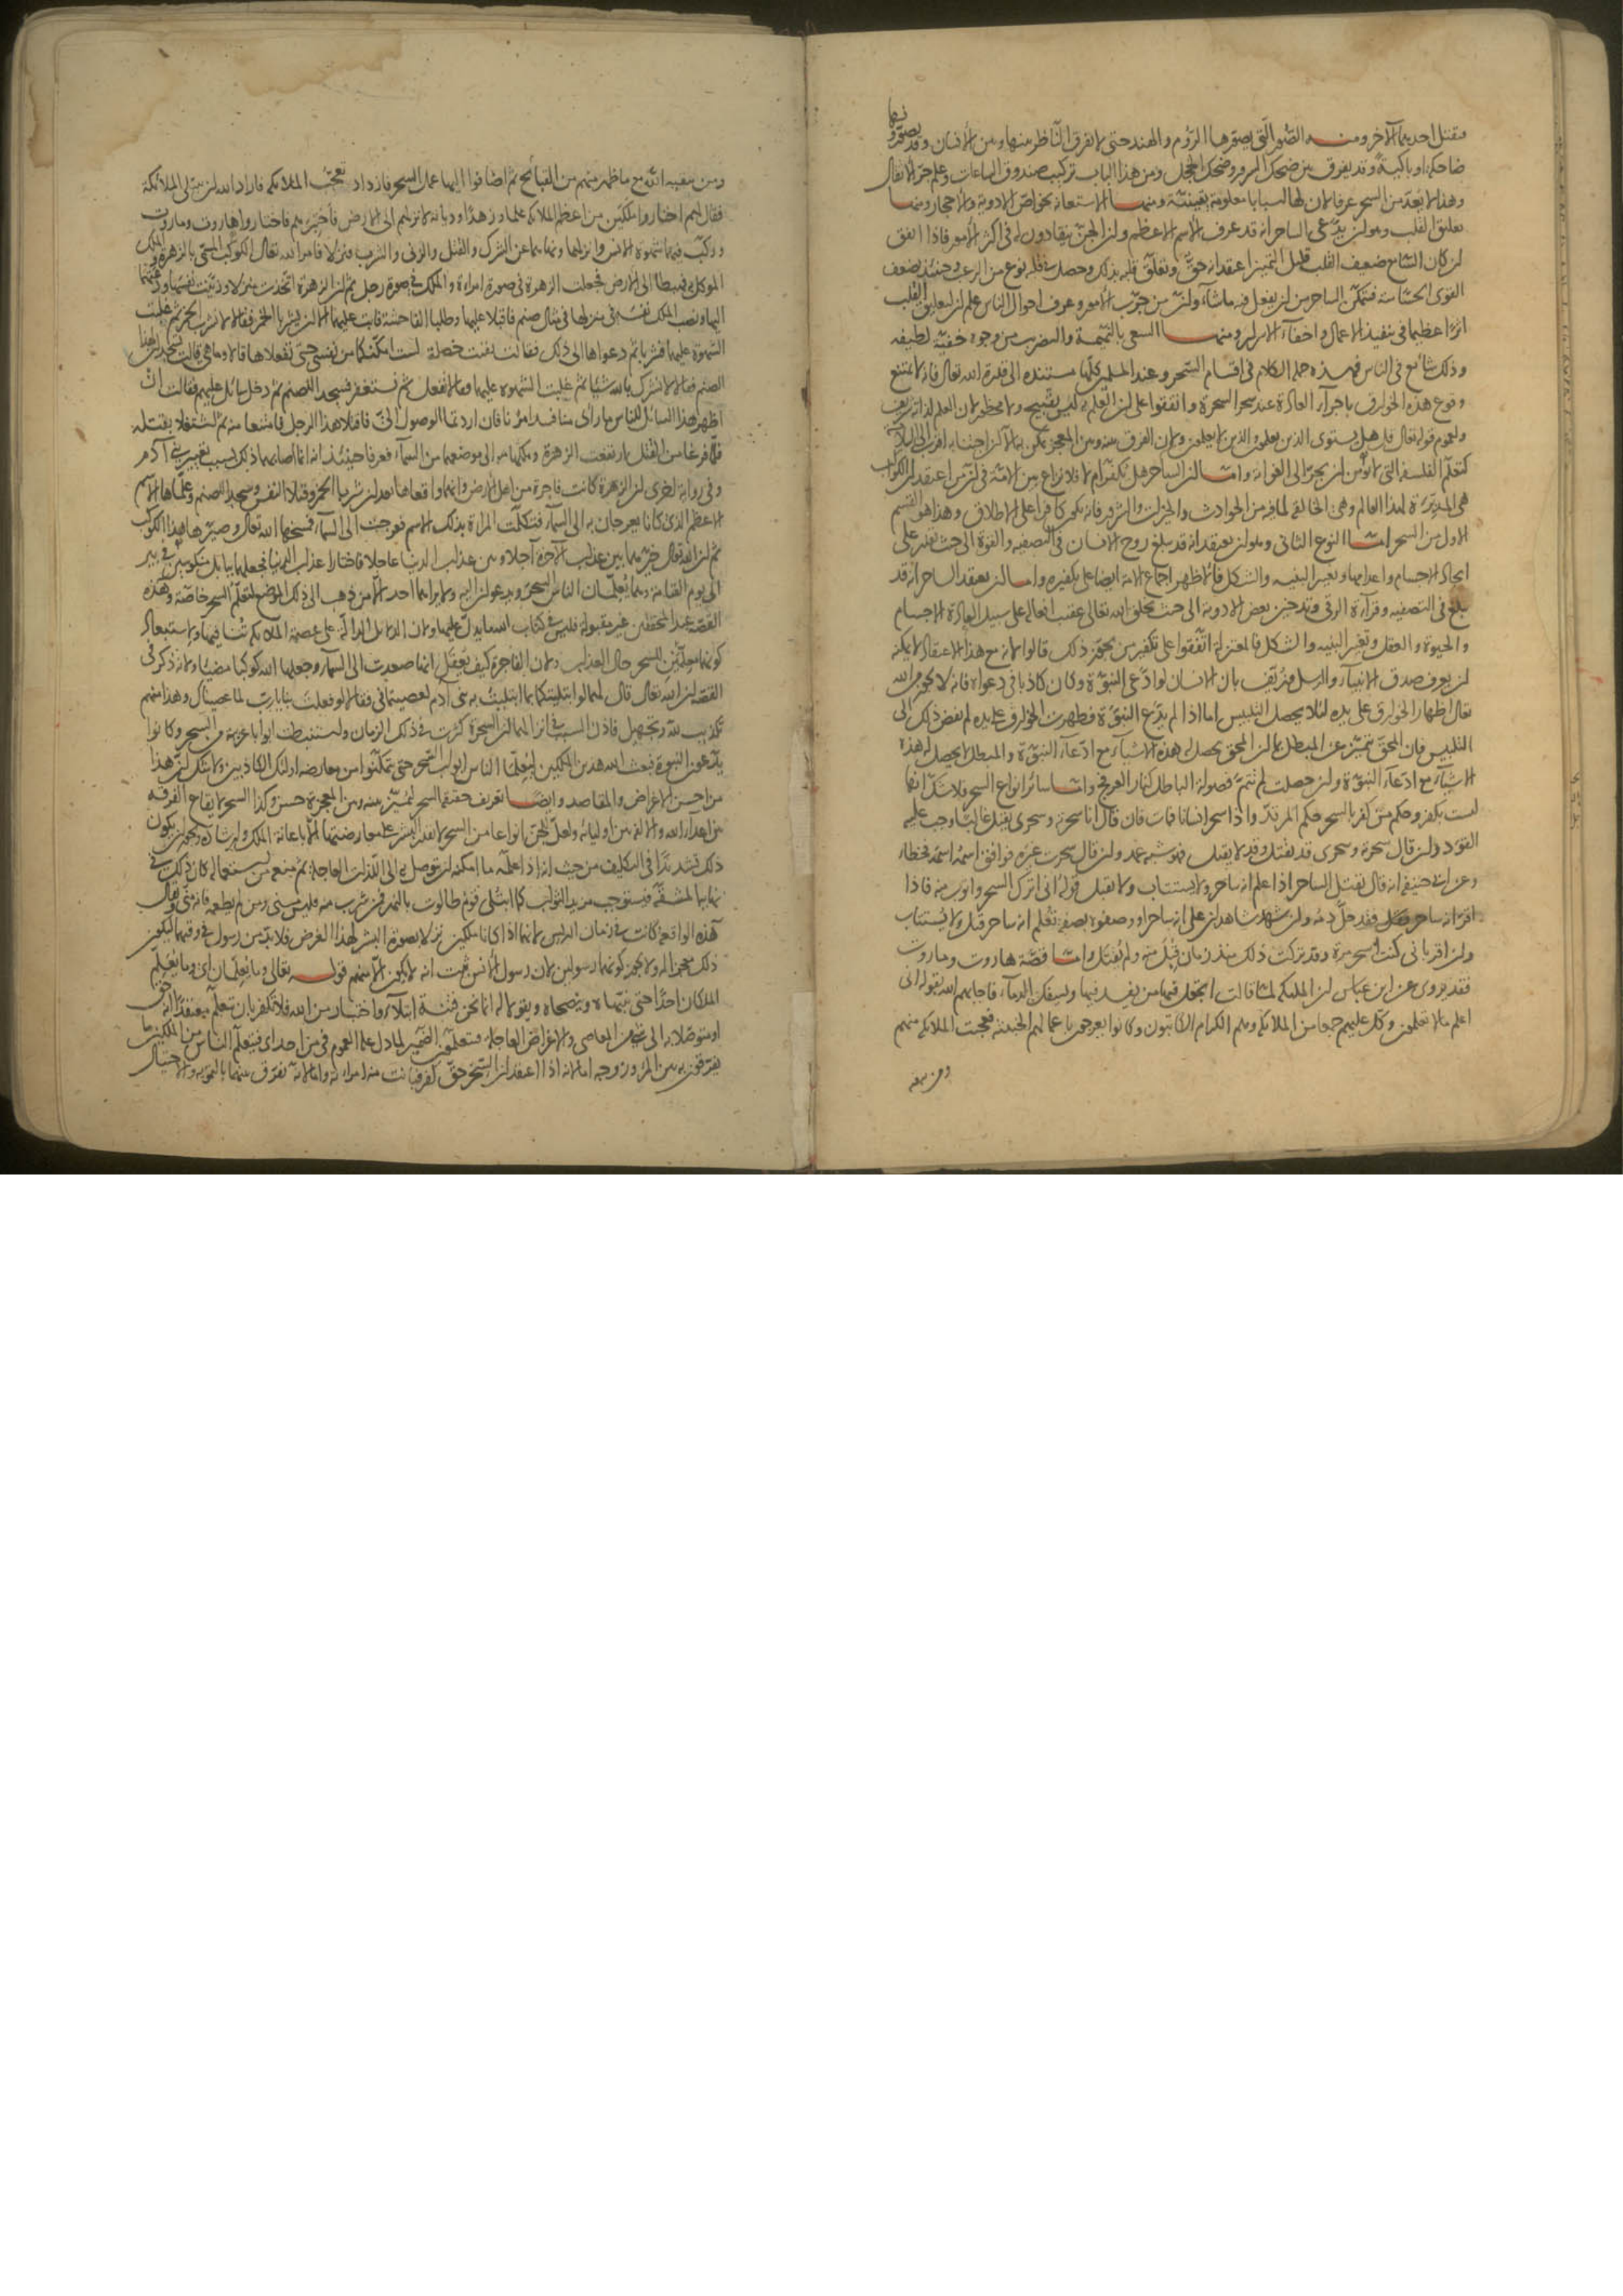 فيقتل احديهما الآخر ومنه الصور التي يصورها الروم والهند حتى لا يفرق الناظر بينها وبين الانسان وقد يصورونها
ضاحكة او باكية وقد يفرق بين ضحك السرور وضحك الخجل ومن هذا الباب تركيب صندوق الساعات وعلم جر الاثقال
وهذا لا يعد من السحر عرفا لان لها اسبابا معلومة يقينية ومنها الاستعانة بخواص الادوية والاحجار ومنها
تعليق القلب وهو ان يدعي الساحر انه قد عرف الاسم الاعظم وان الجن ينقادون له في اكثر الامور فاذا اتفق
ان كان السامع ضعيف القلب قليل التمييز اعتقد انه حق وتعلق قلبه بذلك وحصل في قلبه نوع من الرعب وحينئذ يضعف
القوى الحساسة فيتمكن الساحر من ان يفعل فيه ما شاء وان من جرب الامور وعرف احوال الناس علم ان لتعليق القلب
اثرا عظيما في تنفيذ الاعمال واخفاء الاسرار ومنها السعي بالنميمة والتضريب من وجوه خفية لطيفة
وذلك شائع في الناس فهذه جملة الكلام في اقسام السحر وعند المسلمين كلها مستندة الى قدرة الله تعالى فانه لا يمتنع
وقوع هذه الخوارق باجراء العادة عند سحر السحرة واتفقوا على ان العلم به ليس بقبيح ولا محظور لان العلم لذاته شريف
ولعموم قوله تعالى قل هل يستوي الذين يعلمون والذين لا يعلمون ولان الفرق بينه وبين المعجز يمكن به الا ان اجتنابه اقرب الى السلامة
كتعلم الفلسفة التي لا يؤمن ان يجر الى الغواية واما ان الساحر هل يكفر ام لا فلا نزاع بين الامة في ان من اعتقد ان الكواكب
هي المدبرة لهذا العالم وهي الخالقة لما فيه من الحوادث والخيرات والشرور فانه يكون كافرا على الاطلاق وهذا هو القسم
الاول من السحر اما النوع الثاني وهو ان يعتقد انه قد يبلغ روح الانسان في التصفية والقوة الى حيث يقدر على
ايجاد الاجسام واعدامها وتغيير البنية والشكل فالاظهر اجماع الامة ايضا على تكفيره واما ان يعتقد الساحر انه قد
يبلغ في التصفية وقراءة الرقى وتدخين بعض الادوية الى حيث يخلق الله تعالى عقيب افعاله على سبيل العادة الاجسام
والحيوة والعقل وتغيير البنية والشكل فالمعتزلة اتفقوا على تكفير من يجوز ذلك قالوا لانه مع هذا الاعتقاد لا يمكنه
ان يعرف صدق الانبياء والرسل وزيف بان الانسان لو ادعى النبوة وكان كاذبا في دعواه فانه لا يجوز من الله
تعالى اظهار الخوارق على يده لئلا يحصل التلبيس اما اذا لم يدع النبوة وظهرت الخوارق على يده لم يفض ذلك الى
التلبيس فان المحق يتميز عن المبطل بما ان المحق يحصل له هذه الاشياء مع ادعاء النبوة والمبطل لا يحصل له هذه
الاشياء مع ادعاء النبوة وان حصلت لم تتم فصولة الباطل كنار العرفج واما سائر انواع السحر فلا شك انها
ليست بكفر وحكم من كفر بالسحر حكم المرتد واذا سحر انسانا فمات فان قال انا سحرته وسحري يقتل غالبا وجب عليه
القود وان قال سحرته وسحري قد يقتل وقد لا يقتل فهو شبه عمد وان قال سحرت غيره فوافق اسمه اسمه فخطأ
وعن ابي حنيفة انه قال يقتل الساحر اذا علم انه ساحر ولا يستتاب ولا يقبل قوله اني اترك السحر واتوب منه فاذا
اقر انه ساحر فقد حل دمه وان شهد شاهدان على انه ساحر او وصفوه بصفة تعلم انه ساحر قتل ولا يستتاب
وان اقر باني كنت اسحر مرة وقد تركت ذلك منذ زمان قبل منه ولم يقتل واما قصة هاروت وماروت
فقد يروى عن ابن عباس ان الملائكة لما قالت اتجعل فيها من يفسد فيها ويسفك الدماء فاجابهم الله بقوله اني
اعلم ما لا تعلمون وكل عليهم جمعا من الملائكة وهم الكرام الكاتبون وكانوا يعرجون باعمالهم الخبيثة فعجبت الملائكة منهم
ومن تبقيه
ومن تبقيه الله مع ما ظهر منهم من القبائح ثم اضافوا اليها عمل السحر فازداد تعجب الملائكة فاراد الله ان يبتلي الملائكة
فقال لهم اختاروا ملكين من اعظم الملائكة علما وزهدا وديانة لانزلهم الى الارض فاختبرهم فاختاروا هاروت وماروت
وركب فيهما شهوة الانس وانزلهما ونهاهما عن الشرك والقتل والزنى والشرب فنزلا فامر الله تعالى الكوكب المسمى بالزهرة والملك
الموكل به فهبطا الى الارض فجعلت الزهرة في صورة امراة والملك في صورة رجل ثم ان الزهرة اتخذت منزلا وزينت نفسها ودعتهما
اليها ونصب الملك نفسه في منزلها في مثال صنم فاقبلا عليها وطلبا الفاحشة فابت عليهما الا ان يشربا الخمر فقالا لا نشرب الخمر ثم غلبت
الشهوة عليهما فشربا ثم دعواها الى ذلك فقالت بقيت خصلة لست امكنكما من نفسي حتى تفعلاها قالا وما هي قالت تسجدان لهذا
الصنم فقالا لا نشرك بالله شيئا ثم غلبت الشهوة عليهما فقالا نفعل ثم نستغفر فسجدا للصنم ثم دخل سائل عليهم فقالت ان
اظهر هذا السائل للناس ما راى منا فسد امرنا فان اردتما الوصول الي فاقتلا هذا الرجل فامتنعا منه ثم اشتغلا بقتله
فلما فرغا من القتل ارتفعت الزهرة وملكها الى موضعهما من السماء فعرفا حينئذ انه انما اصابهما ذلك بسبب تعيير بني آدم
وفي رواية اخرى ان الزهرة كانت فاجرة من اهل الارض وانهما واقعاها بعد ان شربا الخمر وقتلا النفس وسجدا للصنم وعلماها الاسم
الاعظم الذي كانا يعرجان به الى السماء فتكلمت المراة بذلك الاسم فعرجت الى السماء فمسخها الله تعالى وصيرها هذا الكوكب
ثم ان الله تعالى خيرهما بين عذاب الآخرة آجلا وبين عذاب الدنيا عاجلا فاختارا عذاب الدنيا فجعلهما ببابل منكوسين في بير
الى يوم القيامة وهما يعلمان الناس السحر ويدعوان اليه ولا يراهما احد الا من ذهب الى ذلك الموضع لتعلم السحر خاصة وهذه
القصة عند المحققين غير مقبولة فليس في كتاب الله ما يدل عليها ولان الدلائل الدالة على عصمة الملائكة تنافيها ولاستبعاد
كونهما معلمين للسحر حال العذاب ولان الفاجرة كيف يعقل انها صعدت الى السماء وجعلها الله كوكبا مضيئا ولانه ذكر في
القصة ان الله تعالى قال لهما لو ابتليتكما بما ابتليت به بني آدم لعصيتماني فقالا لو فعلت بنا يا رب لما عصيناك وهذا منهم
تكذيب لله وتجهيل فاذن السبب في انزالهما ان السحرة كثرت في ذلك الزمان واستنبطت ابوابا غريبة من السحر وكانوا
يدعون النبوة فبعث الله هذين الملكين ليعلما الناس ابواب السحر حتى يتمكنوا من معارضة اولئك الكاذبين ولا شك ان هذا
من احسن الاغراض والمقاصد وايضا تعريف حقيقة السحر ليميز بينه وبين المعجزة حسن وكذا السحر لايقاع الفرقة
بين اعداء الله والالفة بين اوليائه ولعل للجن انواعا من السحر لا يقدر البشر على معارضتها الا باعانة الملك وارشاده ويجوز ان يكون
ذلك تشديدا في التكليف من حيث انه اذا علمه ما امكنه ان يتوصل به الى اللذات العاجلة ثم منعه من استعمالها كان ذلك في
نهاية المشقة فيستوجب مزيد الثواب كما ابتلي قوم طالوت بالنهر فمن شرب منه فليس مني ومن لم يطعمه فانه مني ويقال
هذه الواقعة كانت في زمان ادريس لانهما اذا كانا ملكين نزلا بصورة البشر لهذا الغرض فلا بد من رسول في وقتهما ليكون
ذلك معجزا له ولا يجوز كونهما رسولين لان رسول الانس ثبت انه لا يكون الا منهم قوله تعالى وما يعلمان اي وما يعلم
الملكان احدا حتى ينبهاه وينصحاه ويقولا له انما نحن فتنة ابتلاء واختبار من الله فلا تكفر بان تتعلمه معتقدا انه حق
او متوصلا به الى شيء من المعاصي والاغراض العاجلة فيتعلمون الضمير لما دل عليه العموم في من احد اي فيتعلم الناس من الملكين ما
يفرقون به بين المرء وزوجه اما لانه اذا اعتقد ان السحر حق كفر فبانت منه امراته واما لانه يفرق بينهما بالتمويه والاحتيال